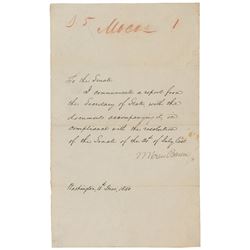 To the Senate
I communicate a report from
the Secretary of State, with the
documents accompanying it, in
compliance with the resolution
of the Senate of the 20th of July last
M Van Buren
Washington,